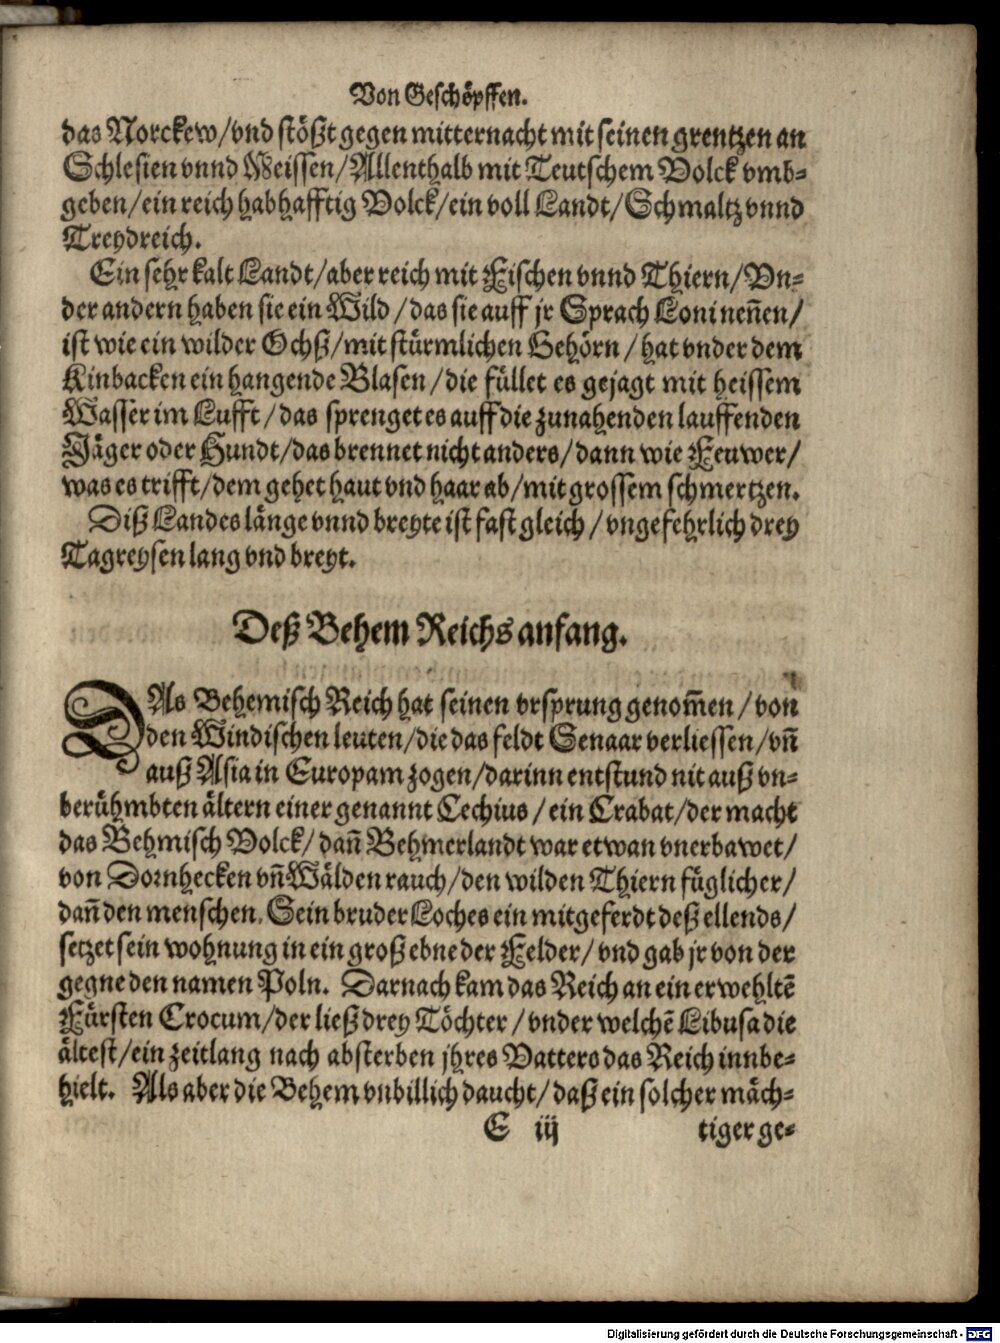 Von Geschöpffen.
das Norckew/vnd stößt gegen mitternacht mit seinen grentzen an
Schlesien vnnd Meissen/Allenthalb mit Teutschem Volck vmb-
geben/ein reich habhafftig Volck/ein voll Landt/Schmaltz vnnd
Treydreich.
Ein sehr kalt Landt/aber reich mit Fischen vnnd Thiern/Vn-
der andern haben sie ein Wild/das sie auff jr Sprach Loni neñen/
ist wie ein wilder Ochß/mit stürmlichen Gehörn/hat vnder dem
Kinbacken ein hangende Blasen/die füllet es gejagt mit heissem
Wasser im Lufft/das sprenget es auff die zunahenden lauffenden
Jäger oder Hundt/das brennet nicht anders/dann wie Feuwer/
was es trifft/dem gehet haut vnd haar ab/mit grossem schmertzen.
Diß Landes länge vnnd breyte ist fast gleich/vngefehrlich drey
Tagreysen lang vnd breyt.
Deß Behem Reichs anfang.
DAs Behemisch Reich hat seinen vrsprung genom̃en/von
den Windischen leuten/die das feldt Senaar verliessen/vñ
auß Asia in Europam zogen/darinn entstund nit auß vn-
berühmbten ältern einer genannt Cechius/ein Crabat/der macht
das Behmisch Volck/dañ Behmerlandt war etwan vnerbawet/
von Dornhecken vñ Wälden rauch/den wilden Thiern füglicher/
dañ den menschen. Sein bruder Loches ein mitgeferdt deß ellends/
setzet sein wohnung in ein groß ebne der Felder/vnd gab jr von der
gegne den namen Poln. Darnach kam das Reich an ein erwehltẽ
Fürsten Crocum/der ließ drey Töchter/vnder welchẽ Libusa die
ältest/ein zeitlang nach absterben jhres Vatters das Reich innbe-
hielt. Als aber die Behem vnbillich daucht/daß ein solcher mäch-
E iij tiger ge-
Digitalisierung gefördert durch die Deutsche Forschungsgemeinschaft - DFG